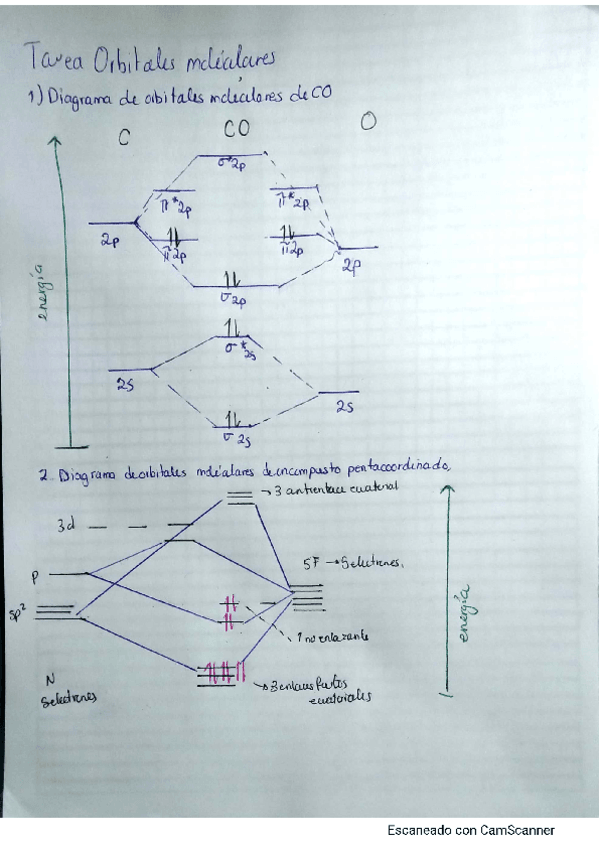 Tarea Orbitales moléculares
1) Diagrama de orbitales moléculares de CO
C CO O
σ*2p
π*2p π*2p
2p π2p π2p 2p
σ2p
energía
σ*2s
2s 2s
σ2s
2. Diagrama de orbitales moléculares de un compuesto pentacoordinado.
→3 antienlace ecuatorial
3d
5F → 5electrones.
p
sp²
1 no enlazante
energía
N
5electrones
→3 enlaces
ecuatoriales
Escaneado con CamScanner